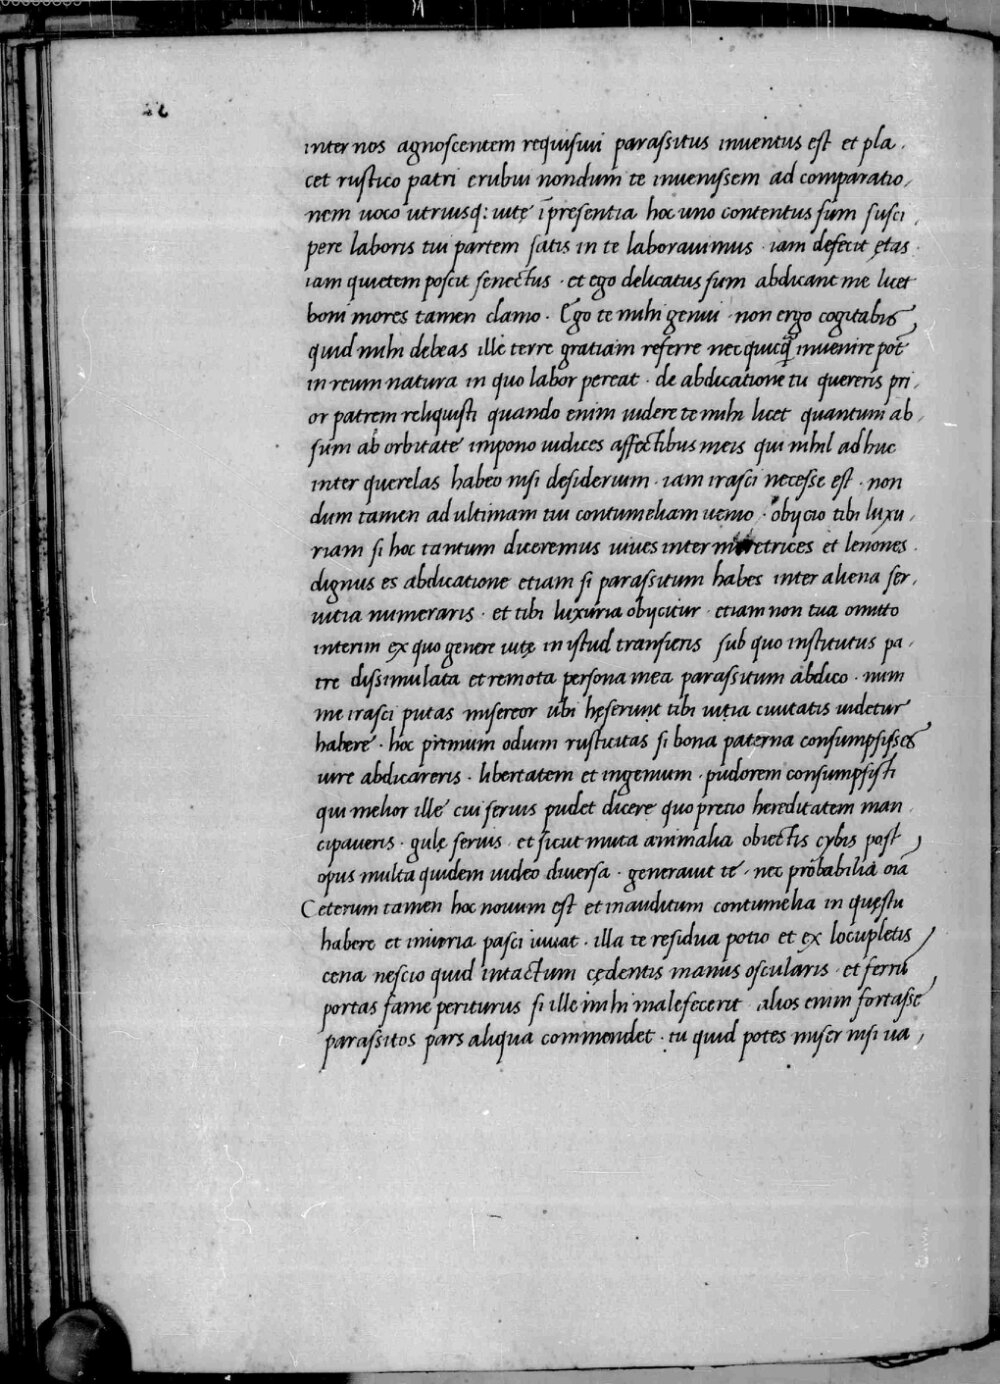 inter nos agnoscentem requisiui parassitus inuentus est et pla
cet rustico patri erubui nondum te inuenissem ad comparatio,
nem uoco utriusq: uitę īpresentia hoc uno contentus sum susci,
pere laboris tui partem satis in te laborauimus · iam defecit ętas
iam quietem poscit senectus · et ego delicatus sum abdicant me licet
boni mores tamen clamo · Ego te mihi genui · non ergo cogitabis
quid mihi debeas ille terre gratiam referre nec quicq̃ inuenire pot̃
in reum natura in quo labor pereat · de abdicatione tu quereris pri,
or patrem reliquisti quando enim uidere te mihi licet quantum ab,
sum ab orbitate impono iudices affectibus meis qui nihil ad huc
inter querelas habeo nisi desiderium · iam irasci necesse est · non
dum tamen ad ultimam tui contumeliam uenio · obijcio tibi luxu,
riam si hoc tantum diceremus uiues inter meretrices et lenones ·
dignus es abdicatione etiam si parassitum habes inter aliena ser,
uitia numeraris · et tibi luxuria obijcitur · etiam non tua omitto
interim ex quo genere uitę in istud transieris sub quo institutus pa,
tre dissimulata et remota persona mea parassitum abdico · num
me irasci putas misereor ubi hęserunt tibi uitia ciuitatis uidetur
habere · hoc primum odium rusticitas si bona paterna consumpsisses
uire abdicareris · libertatem et ingenium · pudorem consumpsisti
qui melior ille cui seruis pudet dicere quo precio hereditatem man
cipaueris · gulę seruis · et sicut muta animalia obiectis cybis post
opus multa quidem uideo diuersa · generauit te · nec probabilia oīa
Ceterum tamen hoc nouum est et inauditum contumelia in quęstu
habere et iniuria pasci iuuat · illa te residua potio et ex locupletis
cena nescio quid intactum cędentis manus oscularis · et ferrū
portas fame periturus si ille mihi malefecerit alios enim fortasse
parassitos pars aliqua commendet · tu quid potes miser nisi ua,